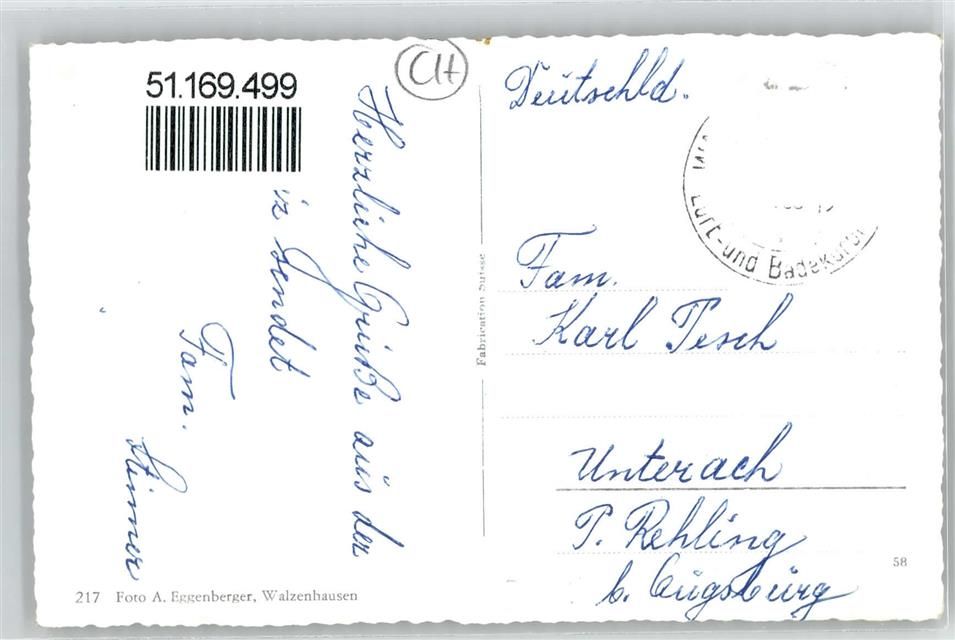 51.169.499
CH
Herzliche Grüße aus der
iz sendet
Fam.
Deutschld.
Luft- und Badekuror
Fam.
Karl Tesch
Unterach
P. Rehling
b. Augsburg
Fabrication Suisse
217 Foto A. Eggenberger, Walzenhausen
58